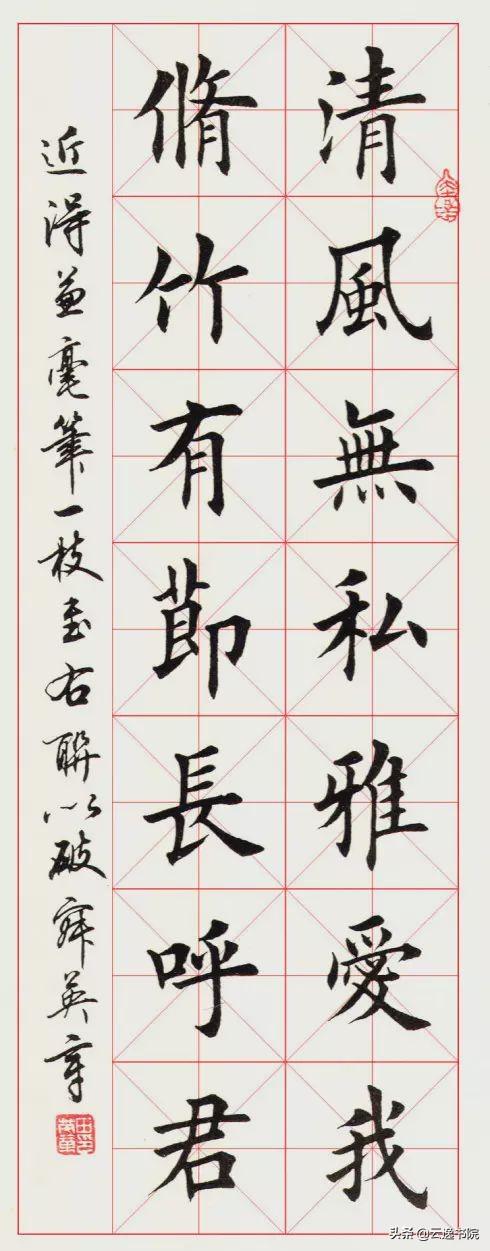 清風無私雅愛我
脩竹有莭長呼君
近得兼毫筆一枝書右聯以破寂英章
田英章印
头条@云逸书院